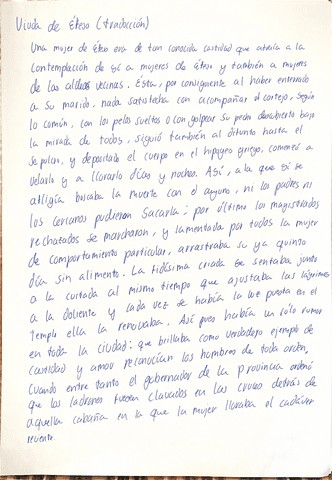 Viuda de Éfeso (traducción)
Una mujer de Éfeso era de tan conocida castidad que atraía a la
contemplación de sí a mujeres de Éfeso y también a mujeres
de las aldeas vecinas. Ésta, por consiguiente al haber enterrado
a su marido, nada satisfecha con acompañar el cortejo, según
lo común, con los pelos sueltos o con golpear su pecho descubierto bajo
la mirada de todos, siguió también al difunto hasta el
sepulcro, y depositado el cuerpo en el hipogeo griego, comenzó a
velarlo y a llorarlo días y noches. Así, a la que sí se
afligía buscaba la muerte con el ayuno, ni los padres ni
los cercanos pudieron sacarla: por último los magistrados
rechazados se marcharon, y lamentada por todos la mujer
de comportamiento particular, arrastraba su ya quinto
día sin alimento. La fidísima criada se sentaba junto
a la cuitada al mismo tiempo que ajustaba las lágrimas
a la doliente y cada vez se había la luz puesta en el
templo ella la renovaba. Así pues había un sólo rumor
en toda la ciudad: que brillaba como verdadero ejemplo de
castidad y amor reconocían los hombres de toda orden,
cuando entre tanto el gobernador de la provincia ordenó
que los ladrones fueran clavados en las cruces detrás de
aquella cabaña en la que la mujer lloraba el cadáver
reciente.